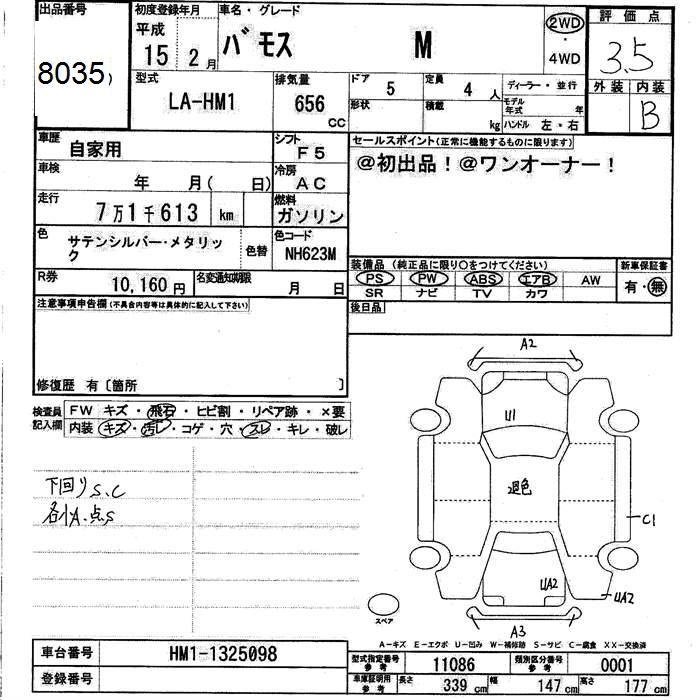 出品番号
8035)
初度登録年月
平成
15 2月
車名・グレード
バモス M
2WD
・
4WD
評価点
3.5
外装 内装
B
型式
LA-HM1
排気量
656
CC
ドア 5
定員 4人
形状
積載 kg
ディーラー・並行
モデル年式 年
ハンドル 左・右
車歴
自家用
シフト
F5
車検
年 月( 日)
冷房
AC
走行
7万1千613 km
燃料
ガソリン
色
サテンシルバー・メタリック
色替
色コード
NH623M
R券
10,160円
名変通知期限
月 日
セールスポイント(正常に機能するものに限ります)
@初出品!@ワンオーナー!
装備品 (純正品に限り○をつけてください)
PS PW ABS エアB AW
SR ナビ TV カワ
新車保証書
有・無
後日品
注意事項申告欄(不具合内容等は具体的に記入して下さい)
修復歴 有〔箇所 〕
検査員
記入欄
FW キズ・飛石・ヒビ割・リペア跡・×要
内装 キズ・汚レ・コゲ・穴・スレ・キレ・破レ
下回りS.C
各小A.点S
A2
U1
退色
C1
UA2
UA2
A3
スペア
A-キズ E-エクボ U-凹み W-補修跡 S-サビ C-腐食 XX-交換済
車台番号
HM1-1325098
登録番号
型式指定番号
参考
11086
類別区分番号
参考
0001
車庫証明用
参考
長さ 339cm
幅 147cm
高さ 177cm